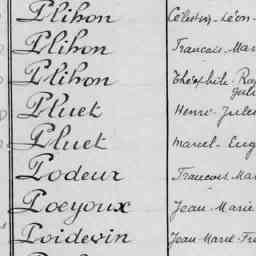 Plihon Célestin Léon
Plihon Francois Mari
Plihon Théophile
Juli
Pluet Henri Jules
Pluet Marcel Eug
Podeur Francois Ma
Poeyoux Jean Marie
Poidevin Jean Marie Fr